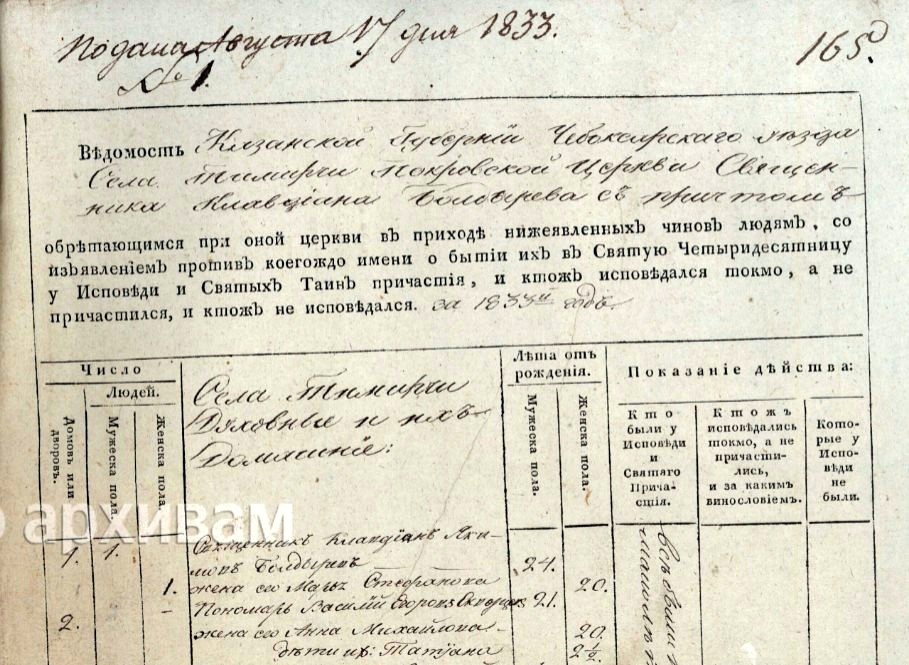 Подана Августа 17 дня 1833.
№ 1.
165.
Вѣдомость Казанской Губерніи Чебоксарскаго уѣзда
Села Тимирчи Покровской Церкви Священ-
ника Клавдіана Болдырева съ причтомъ
обрѣтающимся при оной церкви въ приходѣ нижеявленныхъ чиновъ людямъ, со
изъявленіемъ противъ коегождо имени о бытіи ихъ въ Святую Четыридесятницу
у Исповѣди и Святыхъ Таинъ причастія, и ктожъ исповѣдался токмо, а не
причастился, и ктожъ не исповѣдался. за 1833й годъ.
Число
Людей.
Домовъ или дворовъ.
Мужеска пола.
Женска пола.
Села Тимирчи
Духовные и ихъ
Домашніе:
Лѣта отъ
рожденія.
Мужеска пола.
Женска пола.
Показаніе дѣйства:
Кто
были у
Исповѣди
и
Святаго
Прича-
стія.
Ктожъ
исповѣдались
токмо, а не
причасти-
лись,
и за какимъ
винословіемъ.
Кото-
рые у
Испо-
вѣди
не
были.
о архивам
1. 1. Священникъ Клавдіанъ Яки-
мовъ Болдыревъ 24.
1. жена его Марья Стефанова 20.
2. – Пономарь Василій Егоровъ 21.
жена его Анна Михайлова 20.
дѣти ихъ: Татіана 2½
Всѣ были